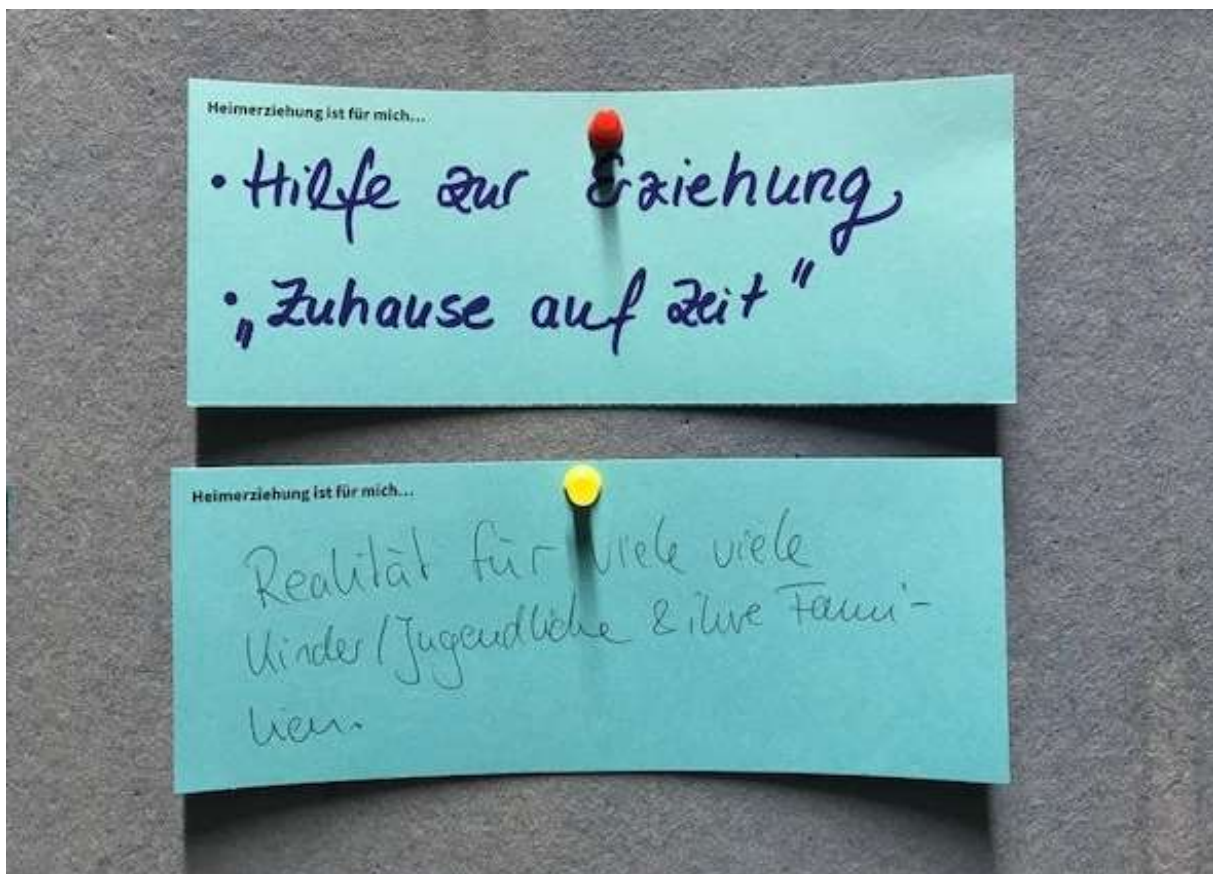 Heimerziehung ist für mich...
• Hilfe zur Erziehung
• „Zuhause auf Zeit"
Heimerziehung ist für mich...
Realität für viele viele
Kinder/Jugendliche & ihre Fami-
lien.